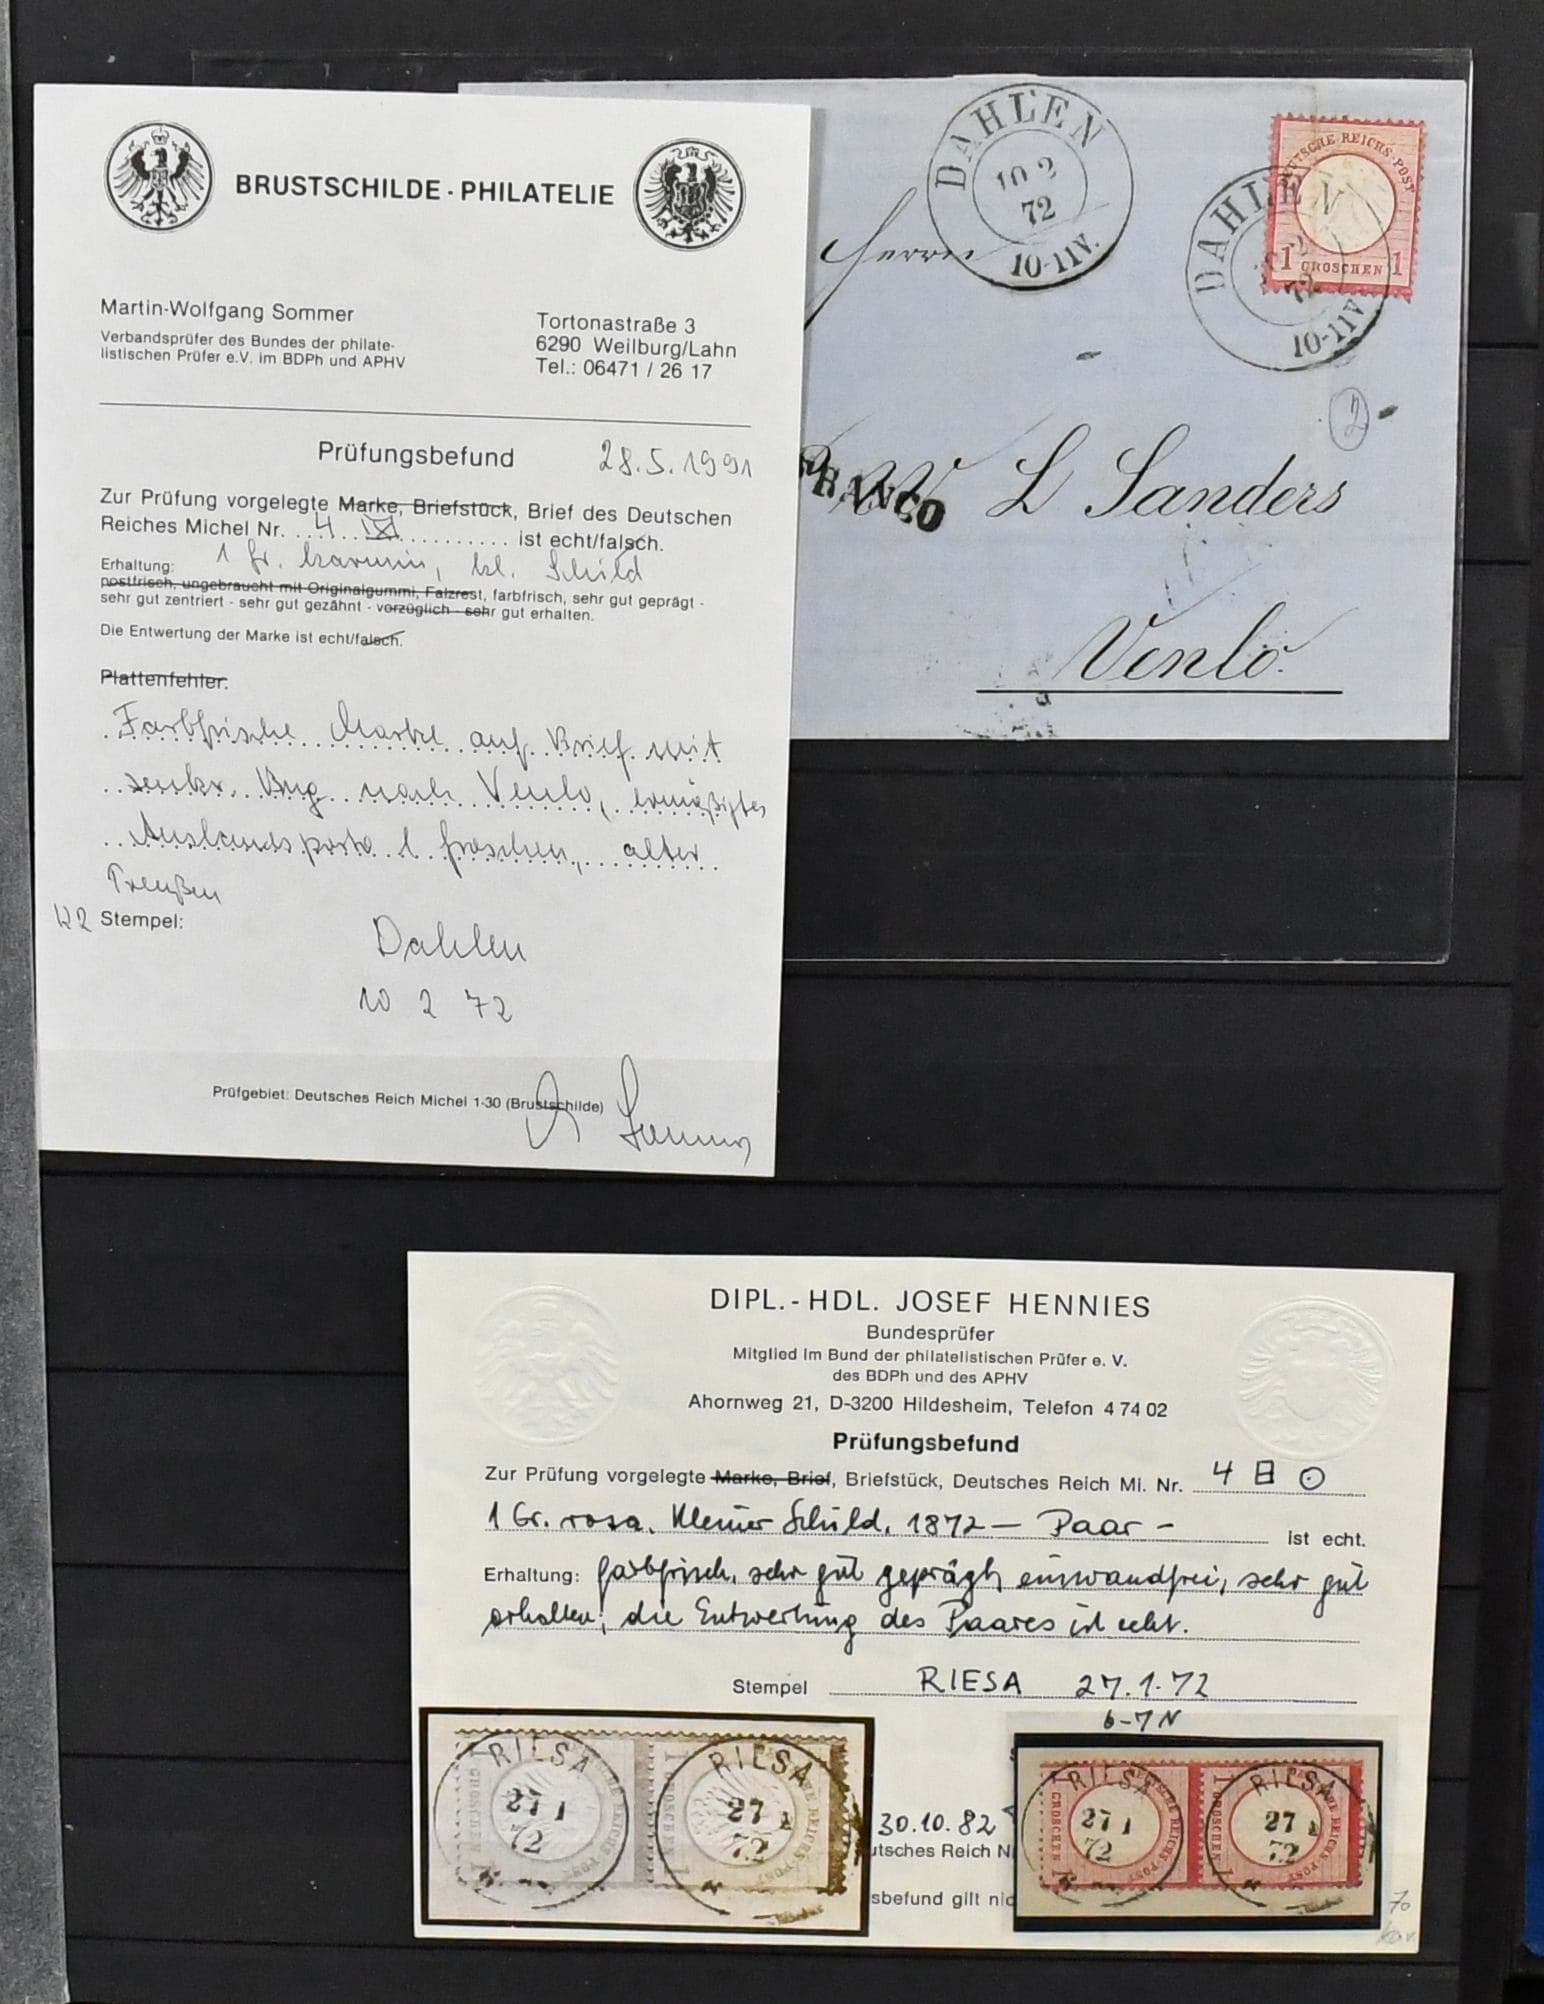 BRUSTSCHILDE · PHILATELIE
Martin-Wolfgang Sommer
Verbandsprüfer des Bundes der philate-
listischen Prüfer e.V. im BDPh und APHV
Tortonastraße 3
6290 Weilburg/Lahn
Tel.: 06471 / 26 17
Prüfungsbefund 28.5.1991
Zur Prüfung vorgelegte Marke, Briefstück, Brief des Deutschen
Reiches Michel Nr. 4 ist echt/falsch.
1 Gr. karmin, kl. Schild
Erhaltung:
postfrisch, ungebraucht mit Originalgummi, Falzrest, farbfrisch, sehr gut geprägt -
sehr gut zentriert - sehr gut gezähnt - vorzüglich - sehr gut erhalten.
Die Entwertung der Marke ist echt/falsch.
Plattenfehler:
Farbfrische Marke auf Brief mit
senkr. Bug nach Venlo, ermäßigtes
Auslandsporto 1 Groschen, alter
Preußen
K2 Stempel:
Dahlen
10 2 72
Prüfgebiet: Deutsches Reich Michel 1-30 (Brustschilde)
Sommer
DAHLEN
10 2
72
10-11V.
DEUTSCHE REICHS-POST
1 GROSCHEN 1
DAHLEN
2
72
10-11V.
Herrn
2
FRANCO
W L Sanders
Venlo.
DIPL.-HDL. JOSEF HENNIES
Bundesprüfer
Mitglied im Bund der philatelistischen Prüfer e. V.
des BDPh und des APHV
Ahornweg 21, D-3200 Hildesheim, Telefon 4 74 02
Prüfungsbefund
Zur Prüfung vorgelegte Marke, Brief, Briefstück, Deutsches Reich Mi. Nr. 4
1 Gr. rosa. Kleiner Schild, 1872 — Paar - ist echt.
Erhaltung: farbfrisch, sehr gut geprägt, einwandfrei, sehr gut
erhalten; die Entwertung des Paares ist echt.
Stempel RIESA 27.1.72
6-7N
RIESA
27 1
72
RIESA
27 1
72
30.10.82
utsches Reich N
sbefund gilt nic
RIESA
27 1
72
RIESA
27 1
72
70